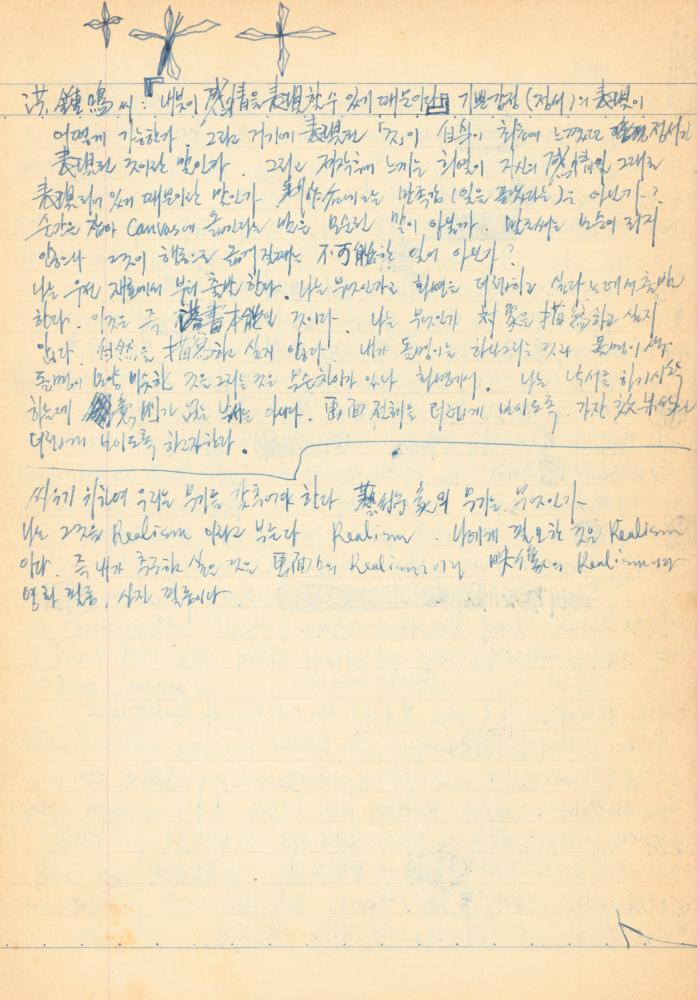 洪鍾鳴 씨 : 「내 붓이 感情을 表現할 수 있기 때문이다」 기쁜 감정 (정서)의 表現이
어떻게 가능한가. 그리고 거기에 表現된 「것」이 自身이 최초에 느꼈던 정서가
表現된 것이란 말인가. 그리고 제작후에 느끼는 희열이 자신의 感情을 그대로
表現되어 있기 때문이란 말인가 만족감 (일을 끝냈다는)은 아닌가?
순간을 잡아 Canvas에 옮긴다는 말은 모순된 말이 아닐까. 모순이 되지
않으나 그것이 행동으로 옮겨질때는 不可能한 일이 아닌가?
나는 우선 재료에서 부터 출발한다. 나는 무엇인가로 화면을 더럽히고 싶다는데서 출발
한다. 이것은 즉 落書本能인 것이다. 나는 무엇인가 対象을 描寫하고 싶지
않다. 自然을 描寫하고 싶지 않다. 내가 돌멩이를 하나 그리는 것과 돌멩이
모양 비슷한 것을 그리는 것은 무슨 차이가 있나 화면에서. 나는 낙서를 하기 시작
하는데 아니다. 画面 전체를 더럽게 보이도록. 가장
더럽게 보이도록 하고자 한다.
싸우기 위하여 우리는 무기를 갖추어야 한다 藝術家의 무기는 무엇인가
나는 그것을 Realism 이라고 부른다 Realism. 나에게 필요한 것은 Realism
이다. 즉 내가 추구하고 싶은 것은 画面上의 Realism이란 映像의 Realism이다
영화 필름, 사진 필름이다.